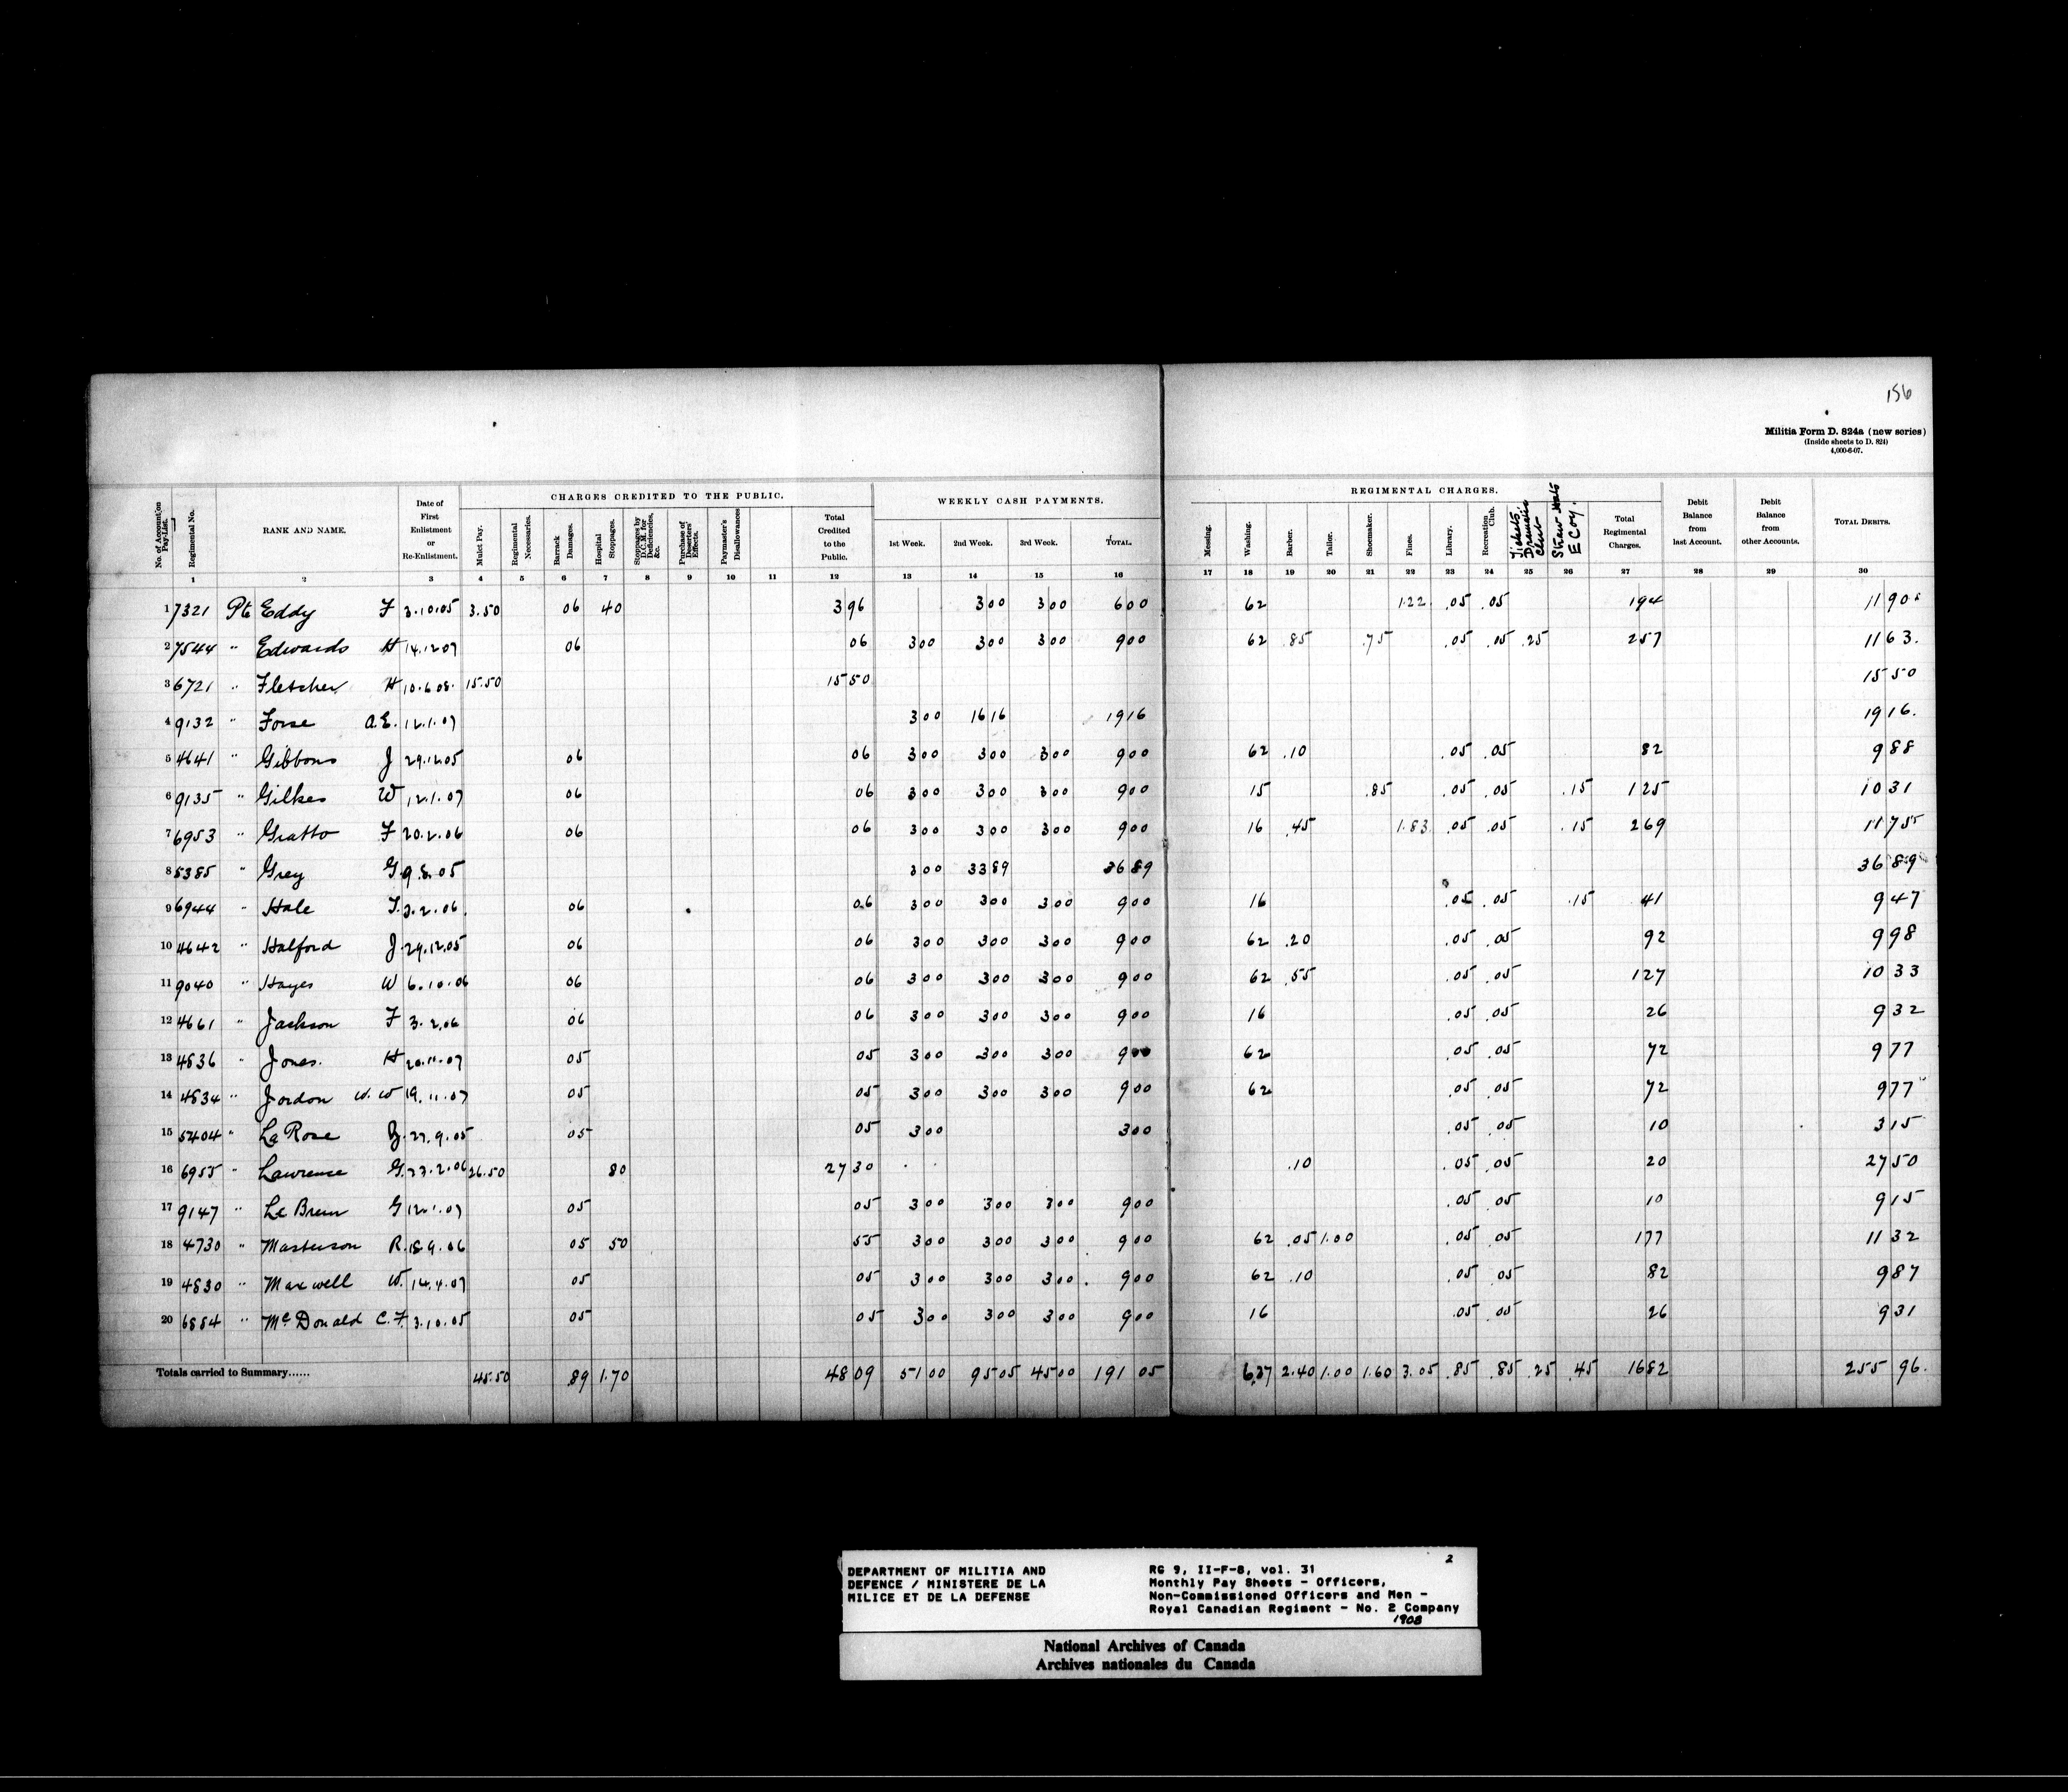 156
Militia Form D. 824a (new series)
(Inside sheets to D. 824)
4,000-6-07.
CHARGES CREDITED TO THE PUBLIC. WEEKLY CASH PAYMENTS. REGIMENTAL CHARGES.
No. of Account on Pay-List. Regimental No. RANK AND NAME. Date of First Enlistment or Re-Enlistment. Mulct Pay. Regimental Necessaries. Barrack Damages. Hospital Stoppages. Stoppages by D.C.M. for Deficiencies, &c. Purchase of Deserters' Effects. Paymaster's Disallowances Total Credited to the Public. 1st Week. 2nd Week. 3rd Week. TOTAL. Messing. Washing. Barber. Tailor. Shoemaker. Fines. Library. Recreation Club. Tickets Dramatic Club Straw Hats E Coy. Total Regimental Charges. Debit Balance from last Account. Debit Balance from other Accounts. TOTAL DEBITS.
1 2 3 4 5 6 7 8 9 10 11 12 13 14 15 16 17 18 19 20 21 22 23 24 25 26 27 28 29 30
1 7321 Pte Eddy F 3.10.05 3.50 06 40 3 96 3 00 3 00 6 00 62 1.22 .05 .05 1 94 11 90
2 7544 " Edwards H 14.12.07 06 06 3 00 3 00 3 00 9 00 62 .85 .75 .05 .05 .25 2 57 11 63.
3 6721 " Fletcher H 10.6.08. 15.50 15 50 15 50
4 9132 " Forse A.E. 12.1.07 3 00 16 16 19 16 19 16.
5 4641 " Gibbons J 29.12.05 06 06 3 00 3 00 3 00 9 00 62 .10 .05 .05 82 9 88
6 9135 " Gilkes W 12.1.07 06 06 3 00 3 00 3 00 9 00 15 .85 .05 .05 .15 1 25 10 31
7 6953 " Gratto F 20.2.06 06 06 3 00 3 00 3 00 9 00 16 .45 1.83 .05 .05 .15 2 69 11 75
8 5385 " Grey G. 9.8.05 3 00 33 89 36 89 36 89
9 6944 " Hale T. 3.2.06. 06 06 3 00 3 00 3 00 9 00 16 .05 .05 .15 41 9 47
10 4642 " Halford J 29.12.05 06 06 3 00 3 00 3 00 9 00 62 .20 .05 .05 92 9 98
11 9040 " Hayes W 6.10.06 06 06 3 00 3 00 3 00 9 00 62 .55 .05 .05 1 27 10 33
12 4661 " Jackson F 3.2.06 06 06 3 00 3 00 3 00 9 00 16 .05 .05 26 9 32
13 4836 " Jones. H 20.11.07 05 05 3 00 3 00 3 00 9 00 62 .05 .05 72 9 77
14 4834 " Jordon W.W 19.11.07 05 05 3 00 3 00 3 00 9 00 62 .05 .05 72 9 77
15 5404 " La Rose 27.9.05 05 05 3 00 3 00 .05 .05 10 3 15
16 6955 " Lawrence G. 23.2.06 26.50 80 27 30 .10 .05 .05 20 27 50
17 9147 " Le Brun G 12.1.07 05 05 3 00 3 00 3 00 9 00 .05 .05 10 9 15
18 4730 " Masterson R. 18.9.06 05 50 55 3 00 3 00 3 00 9 00 62 .05 1.00 .05 .05 1 77 11 32
19 4830 " Maxwell W. 14.4.07 05 05 3 00 3 00 3 00 9 00 62 .10 .05 .05 82 9 87
20 6884 " McDonald C.F. 3.10.05 05 05 3 00 3 00 3 00 9 00 16 .05 .05 26 9 31
Totals carried to Summary...... 45.50 .89 1.70 48 09 51 00 95 05 45 00 191 05 6.37 2.40 1.00 1.60 3.05 .85 .85 .25 .45 16 82 255 96.
2
DEPARTMENT OF MILITIA AND
DEFENCE / MINISTERE DE LA
MILICE ET DE LA DEFENSE
RG 9, II-F-8, vol. 31
Monthly Pay Sheets - Officers,
Non-Commissioned Officers and Men -
Royal Canadian Regiment - No. 2 Company
1908
National Archives of Canada
Archives nationales du Canada